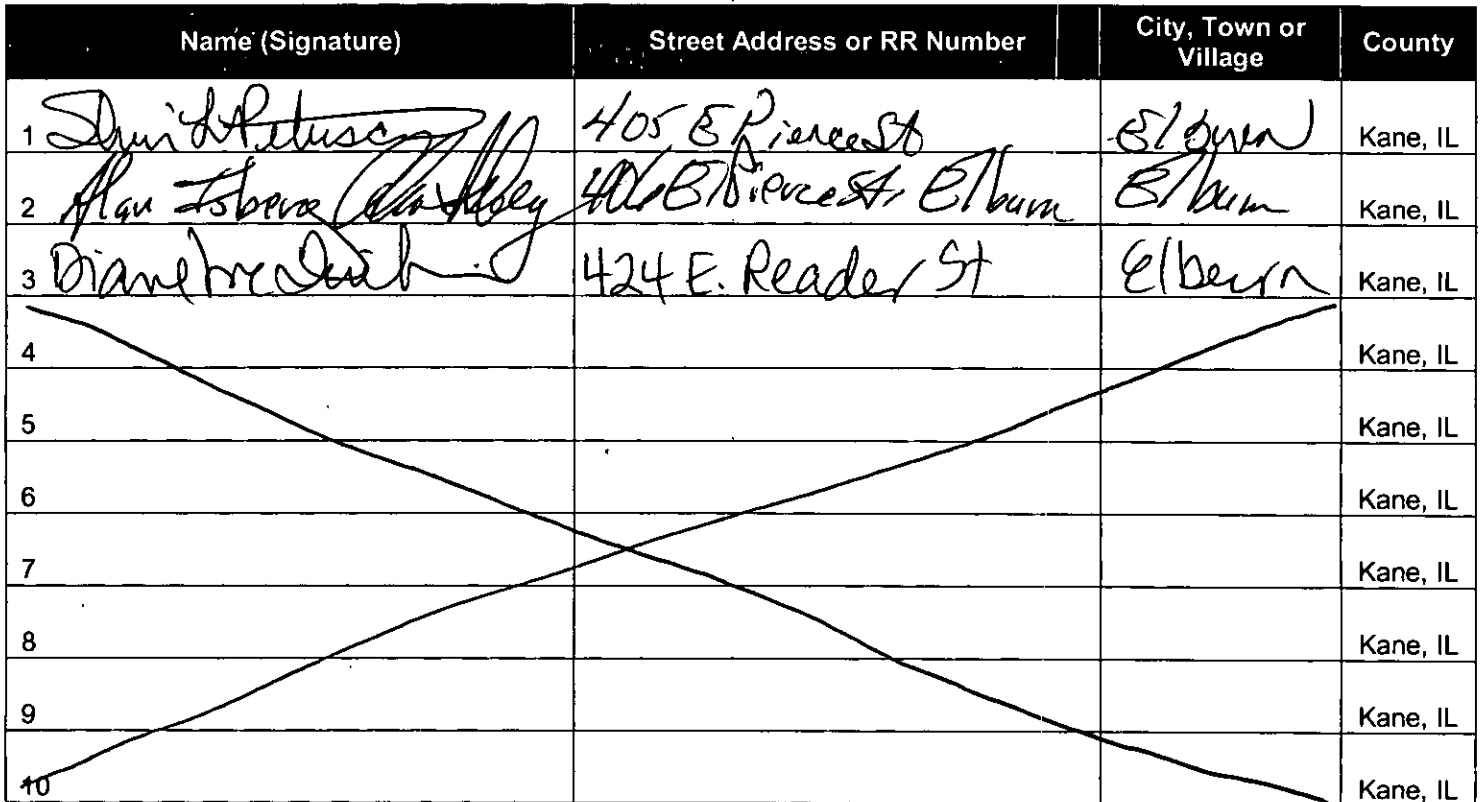 Name (Signature) Street Address or RR Number City, Town or Village County
1 405 E Pierce St Elburn Kane, IL
2 Alan 406 E Pierce St, Elburn Elburn Kane, IL
3 Diane 424 E. Reader St Elburn Kane, IL
4 Kane, IL
5 Kane, IL
6 Kane, IL
7 Kane, IL
8 Kane, IL
9 Kane, IL
10 Kane, IL